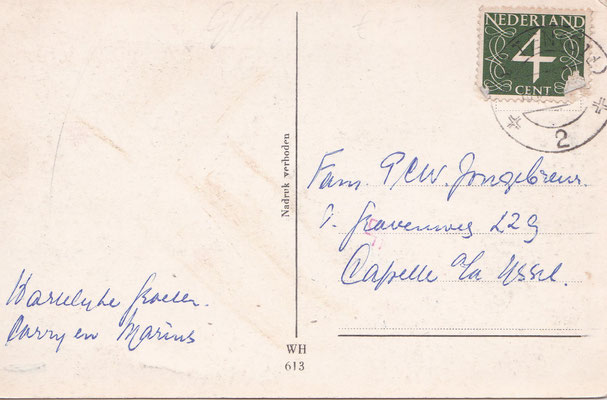 NEDERLAND
4
CENT
2
Nadruk verboden
Fam. P.C.W. Jongebreur.
s' Gravenweg 229
Capelle a/a Yssel.
Hartelijke Groeten.
Corry en Marius
WH
613